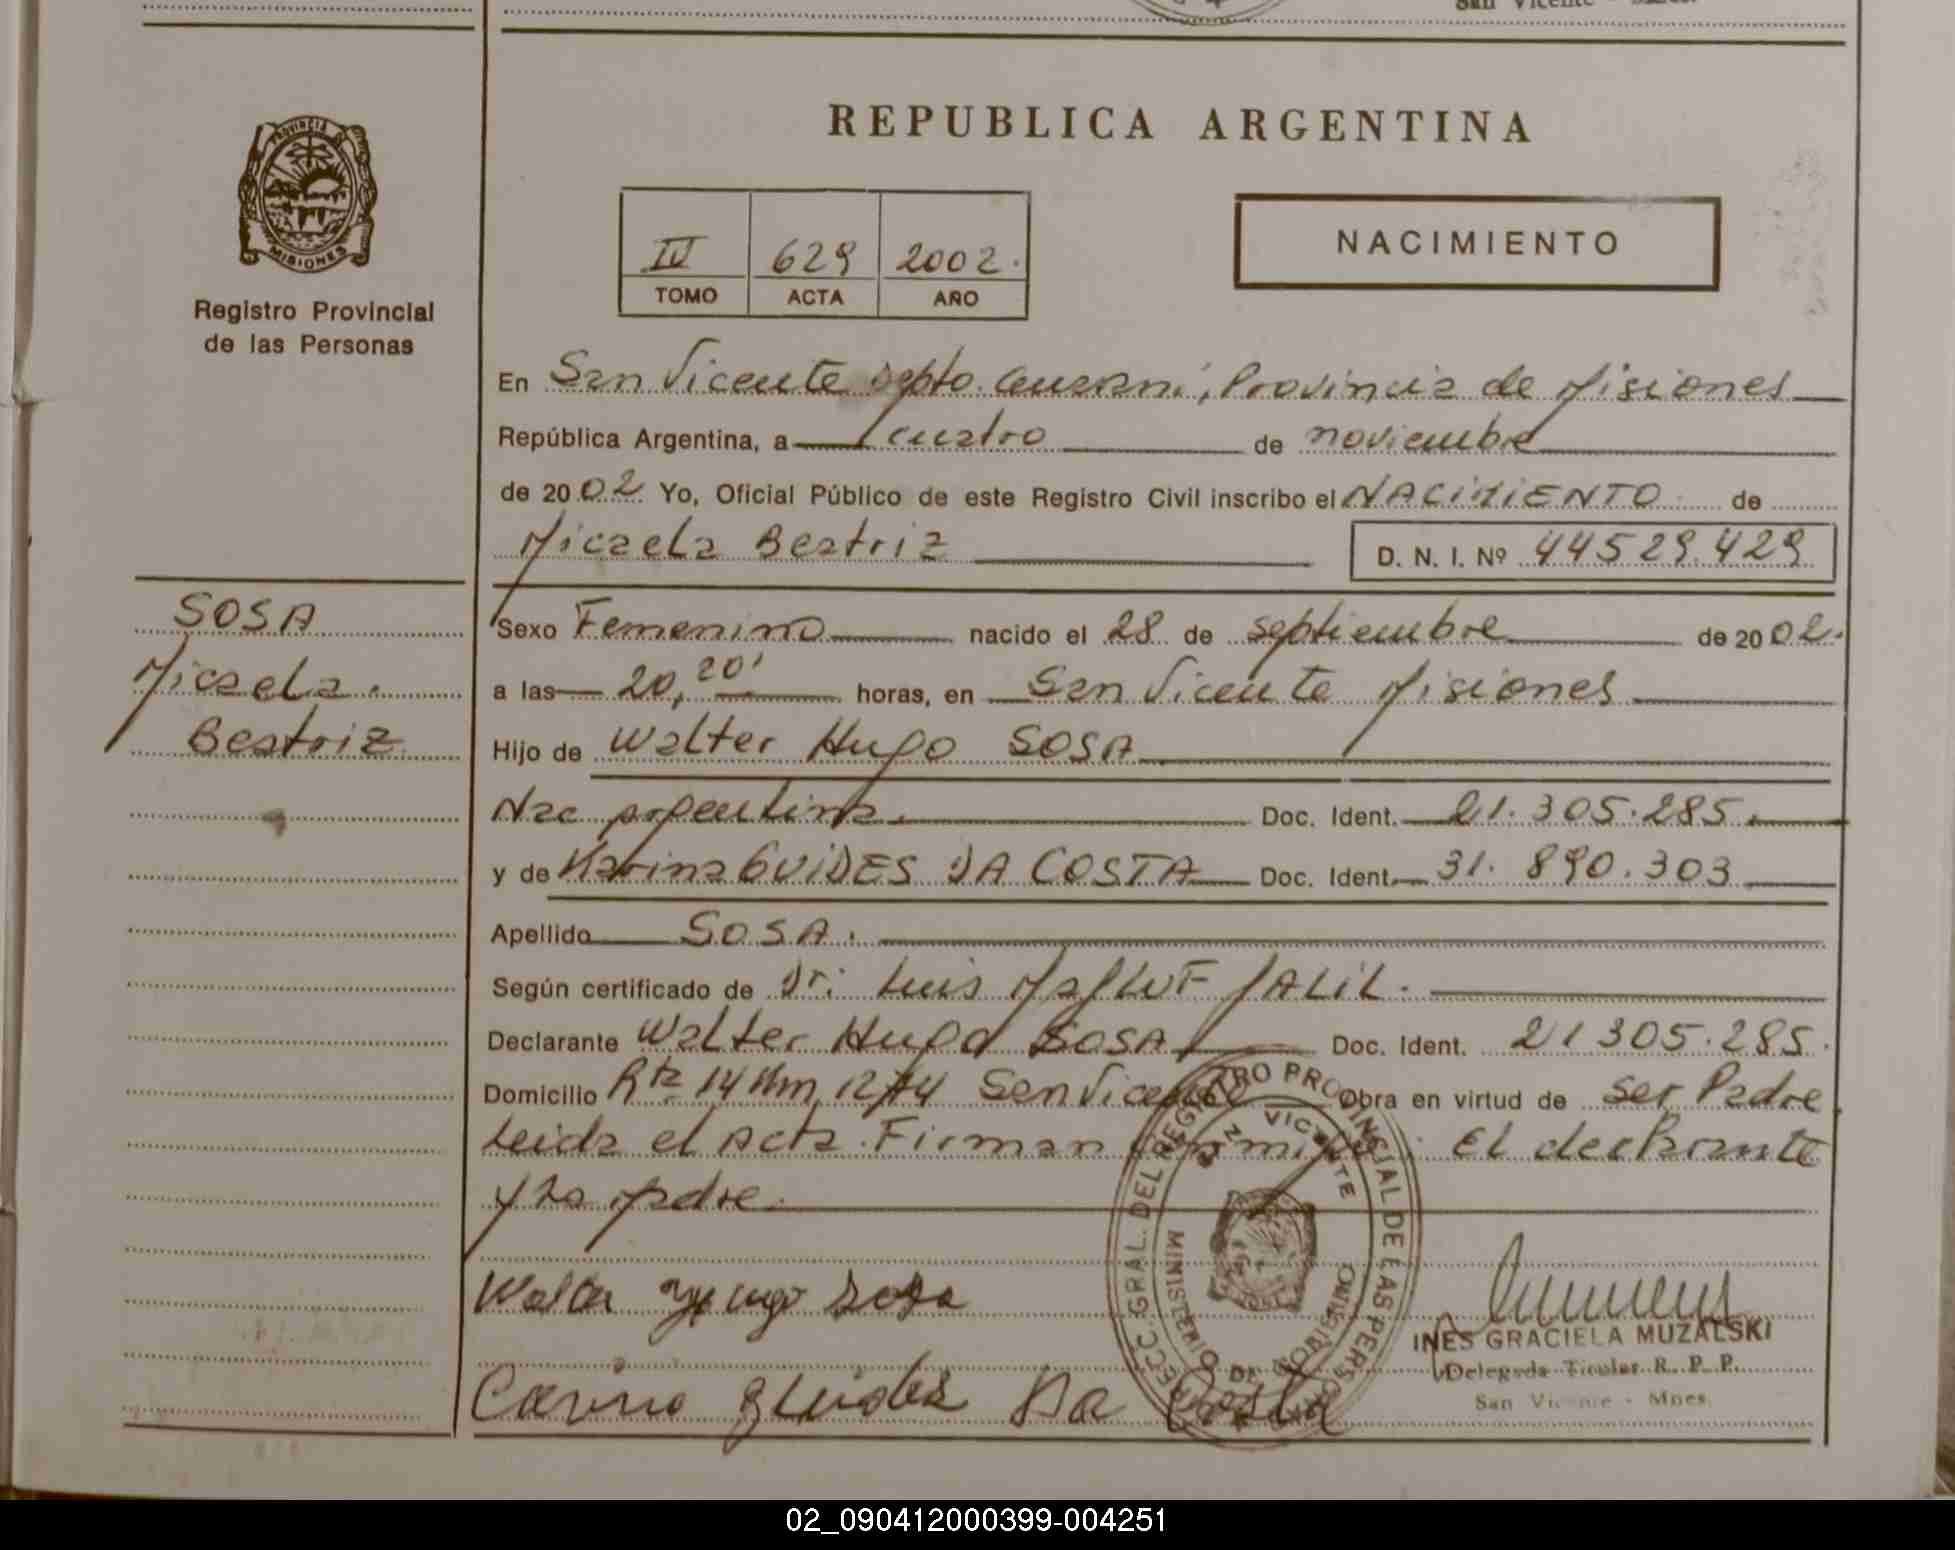 San Vicente - Mnes.
REPUBLICA ARGENTINA
PROVINCIA DE
MISIONES
Registro Provincial
de las Personas
IV 629 2002.
TOMO ACTA AÑO
NACIMIENTO
En San Vicente Depto. Guaraní, Provincia de Misiones
República Argentina, a cuatro de noviembre
de 2002 Yo, Oficial Público de este Registro Civil inscribo el NACIMIENTO de
Micaela Beatriz D. N. I. Nº 44529.429
SOSA
Micaela.
Beatriz
Sexo Femenino nacido el 28 de septiembre de 2002.
a las 20,20' horas, en San Vicente Misiones
Hijo de Walter Hugo SOSA
Nac argentina. Doc. Ident. 21.305.285.
y de Karina GUIDES DA COSTA Doc. Ident. 31.890.303
Apellido SOSA.
Según certificado de Dr: Luis JALIL.
Declarante Walter Hugo SOSA Doc. Ident. 21305.285.
Domicilio Rta 14 Km 1274 San Vicente Obra en virtud de ser Padre
Leida el Acta. Firman conmigo: El declarante
y la madre.
DIRECC. GRAL. DEL REGISTRO PROVINCIAL DE LAS PERSONAS
SAN VICENTE
MINISTERIO DE GOBIERNO
Walter Hugo Sosa
INES GRACIELA MUZALSKI
Delegada Titular R. P. P.
San Vicente - Mnes.
Carina Guides Da Costa
02_090412000399-004251